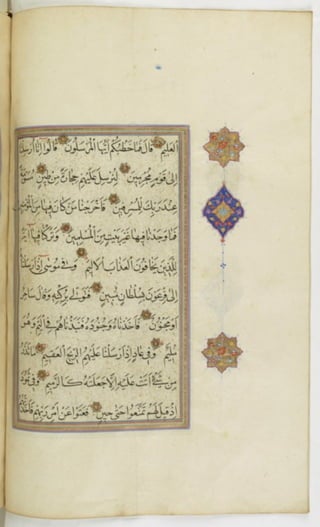 العليم قال فما خطبكم أيها المرسلون قالوا إنا أرسلنا
إلى قوم مجرمين لنرسل عليهم حجارة من طين مسومة
عند ربك للمسرفين فأخرجنا من كان فيها من المؤمنين
فما وجدنا فيها غير بيت من المسلمين وتركنا فيها آية
للذين يخافون العذاب الأليم وفي موسى إذ أرسلناه
إلى فرعون بسلطان مبين فتولى بركنه وقال ساحر
أو مجنون فأخذناه وجنوده فنبذناهم في اليم وهو
مليم وفي عاد إذ أرسلنا عليهم الريح العقيم ما تذر
من شيء أتت عليه إلا جعلته كالرميم وفي ثمود
إذ قيل لهم تمتعوا حتى حين فعتوا عن أمر ربهم فأخذتهم